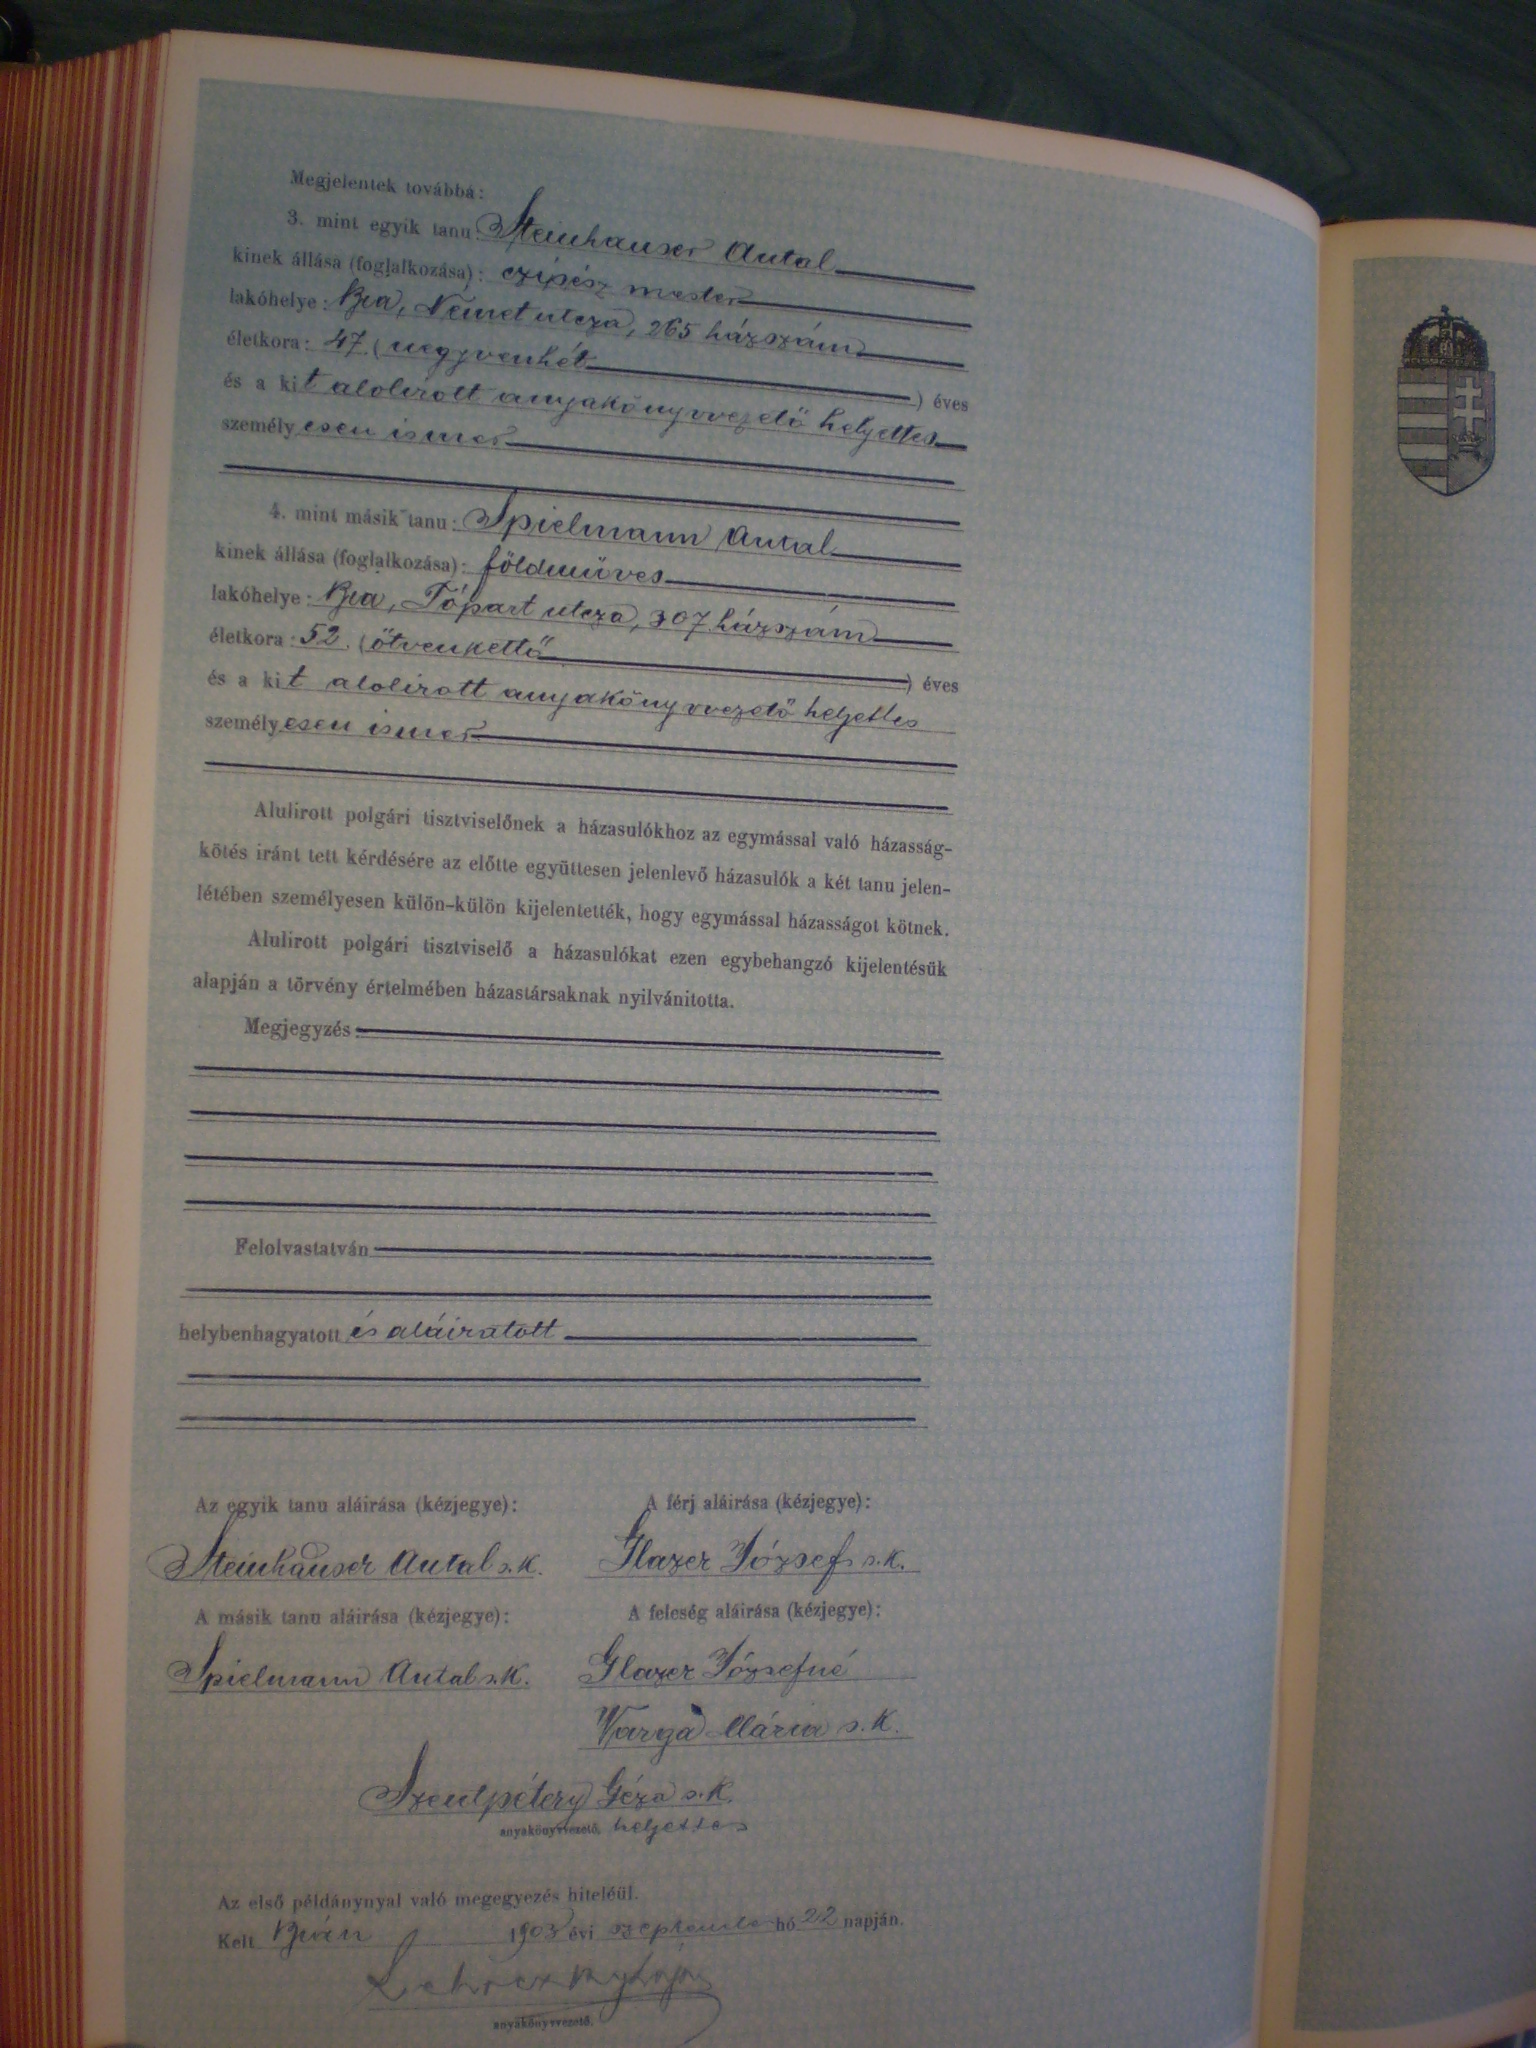 Megjelentek továbbá:
3. mint egyik tanu: Steinhauser Antal
kinek állása (foglalkozása): czipész mester
lakóhelye: Bia, Német utcza, 265 házszám
életkora: 47. (negyvenhét) éves
és a kit alolirott anyakönyvvezető helyettes
személyesen ismer
4. mint másik tanu: Spielmann Antal
kinek állása (foglalkozása): földmüves
lakóhelye: Bia, Tópart utcza, 307. házszám
életkora: 52. (ötvenkettő) éves
és a kit alolirott anyakönyvvezető helyettes
személyesen ismer
Alulirott polgári tisztviselőnek a házasulókhoz az egymással való házasság-
kötés iránt tett kérdésére az előtte együttesen jelenlevő házasulók a két tanu jelen-
létében személyesen külön-külön kijelentették, hogy egymással házasságot kötnek.
Alulirott polgári tisztviselő a házasulókat ezen egybehangzó kijelentésük
alapján a törvény értelmében házastársaknak nyilvánitotta.
Megjegyzés:
Felolvastatván
helybenhagyatott és aláiratott
Az egyik tanu aláirása (kézjegye): A férj aláirása (kézjegye):
Steinhauser Antal s.k. Glazer József s.k.
A másik tanu aláirása (kézjegye): A feleség aláirása (kézjegye):
Spielmann Antal s.k. Glazer Józsefné
Varga Mária s.k.
Szentpétery Géza s.k.
anyakönyvvezető. helyettes
Az első példánynyal való megegyezés hiteléül.
Kelt Bián 1903 évi szeptember hó 22 napján.
anyakönyvvezető.